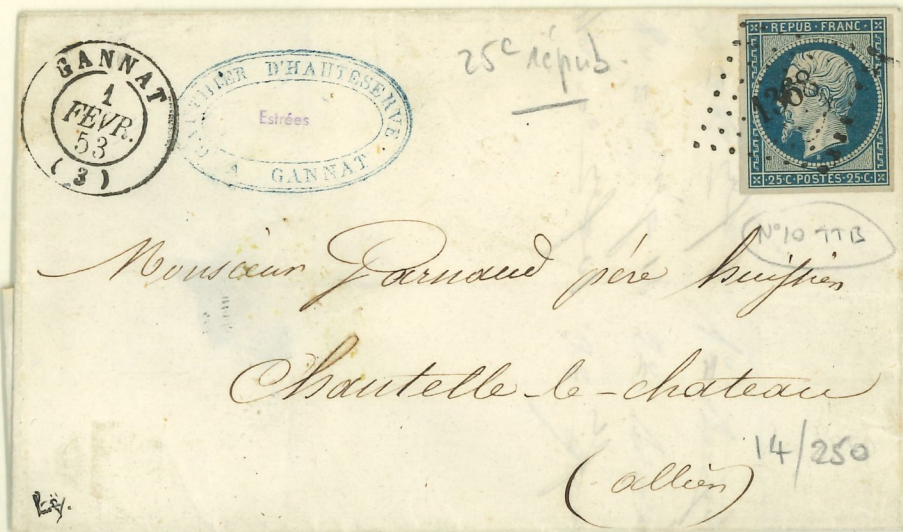 GANNAT
1
FEVR.
53
(3)
GAUTHIER D'HAUTESERVE
Estrées
A GANNAT
25c répub.
REPUB·FRANC·
1368
·25·C·POSTES·25·C·
N°10 TTB
Monsieur Parnaud père huissier
Chantelle-le-chateau
(allier)
14/250